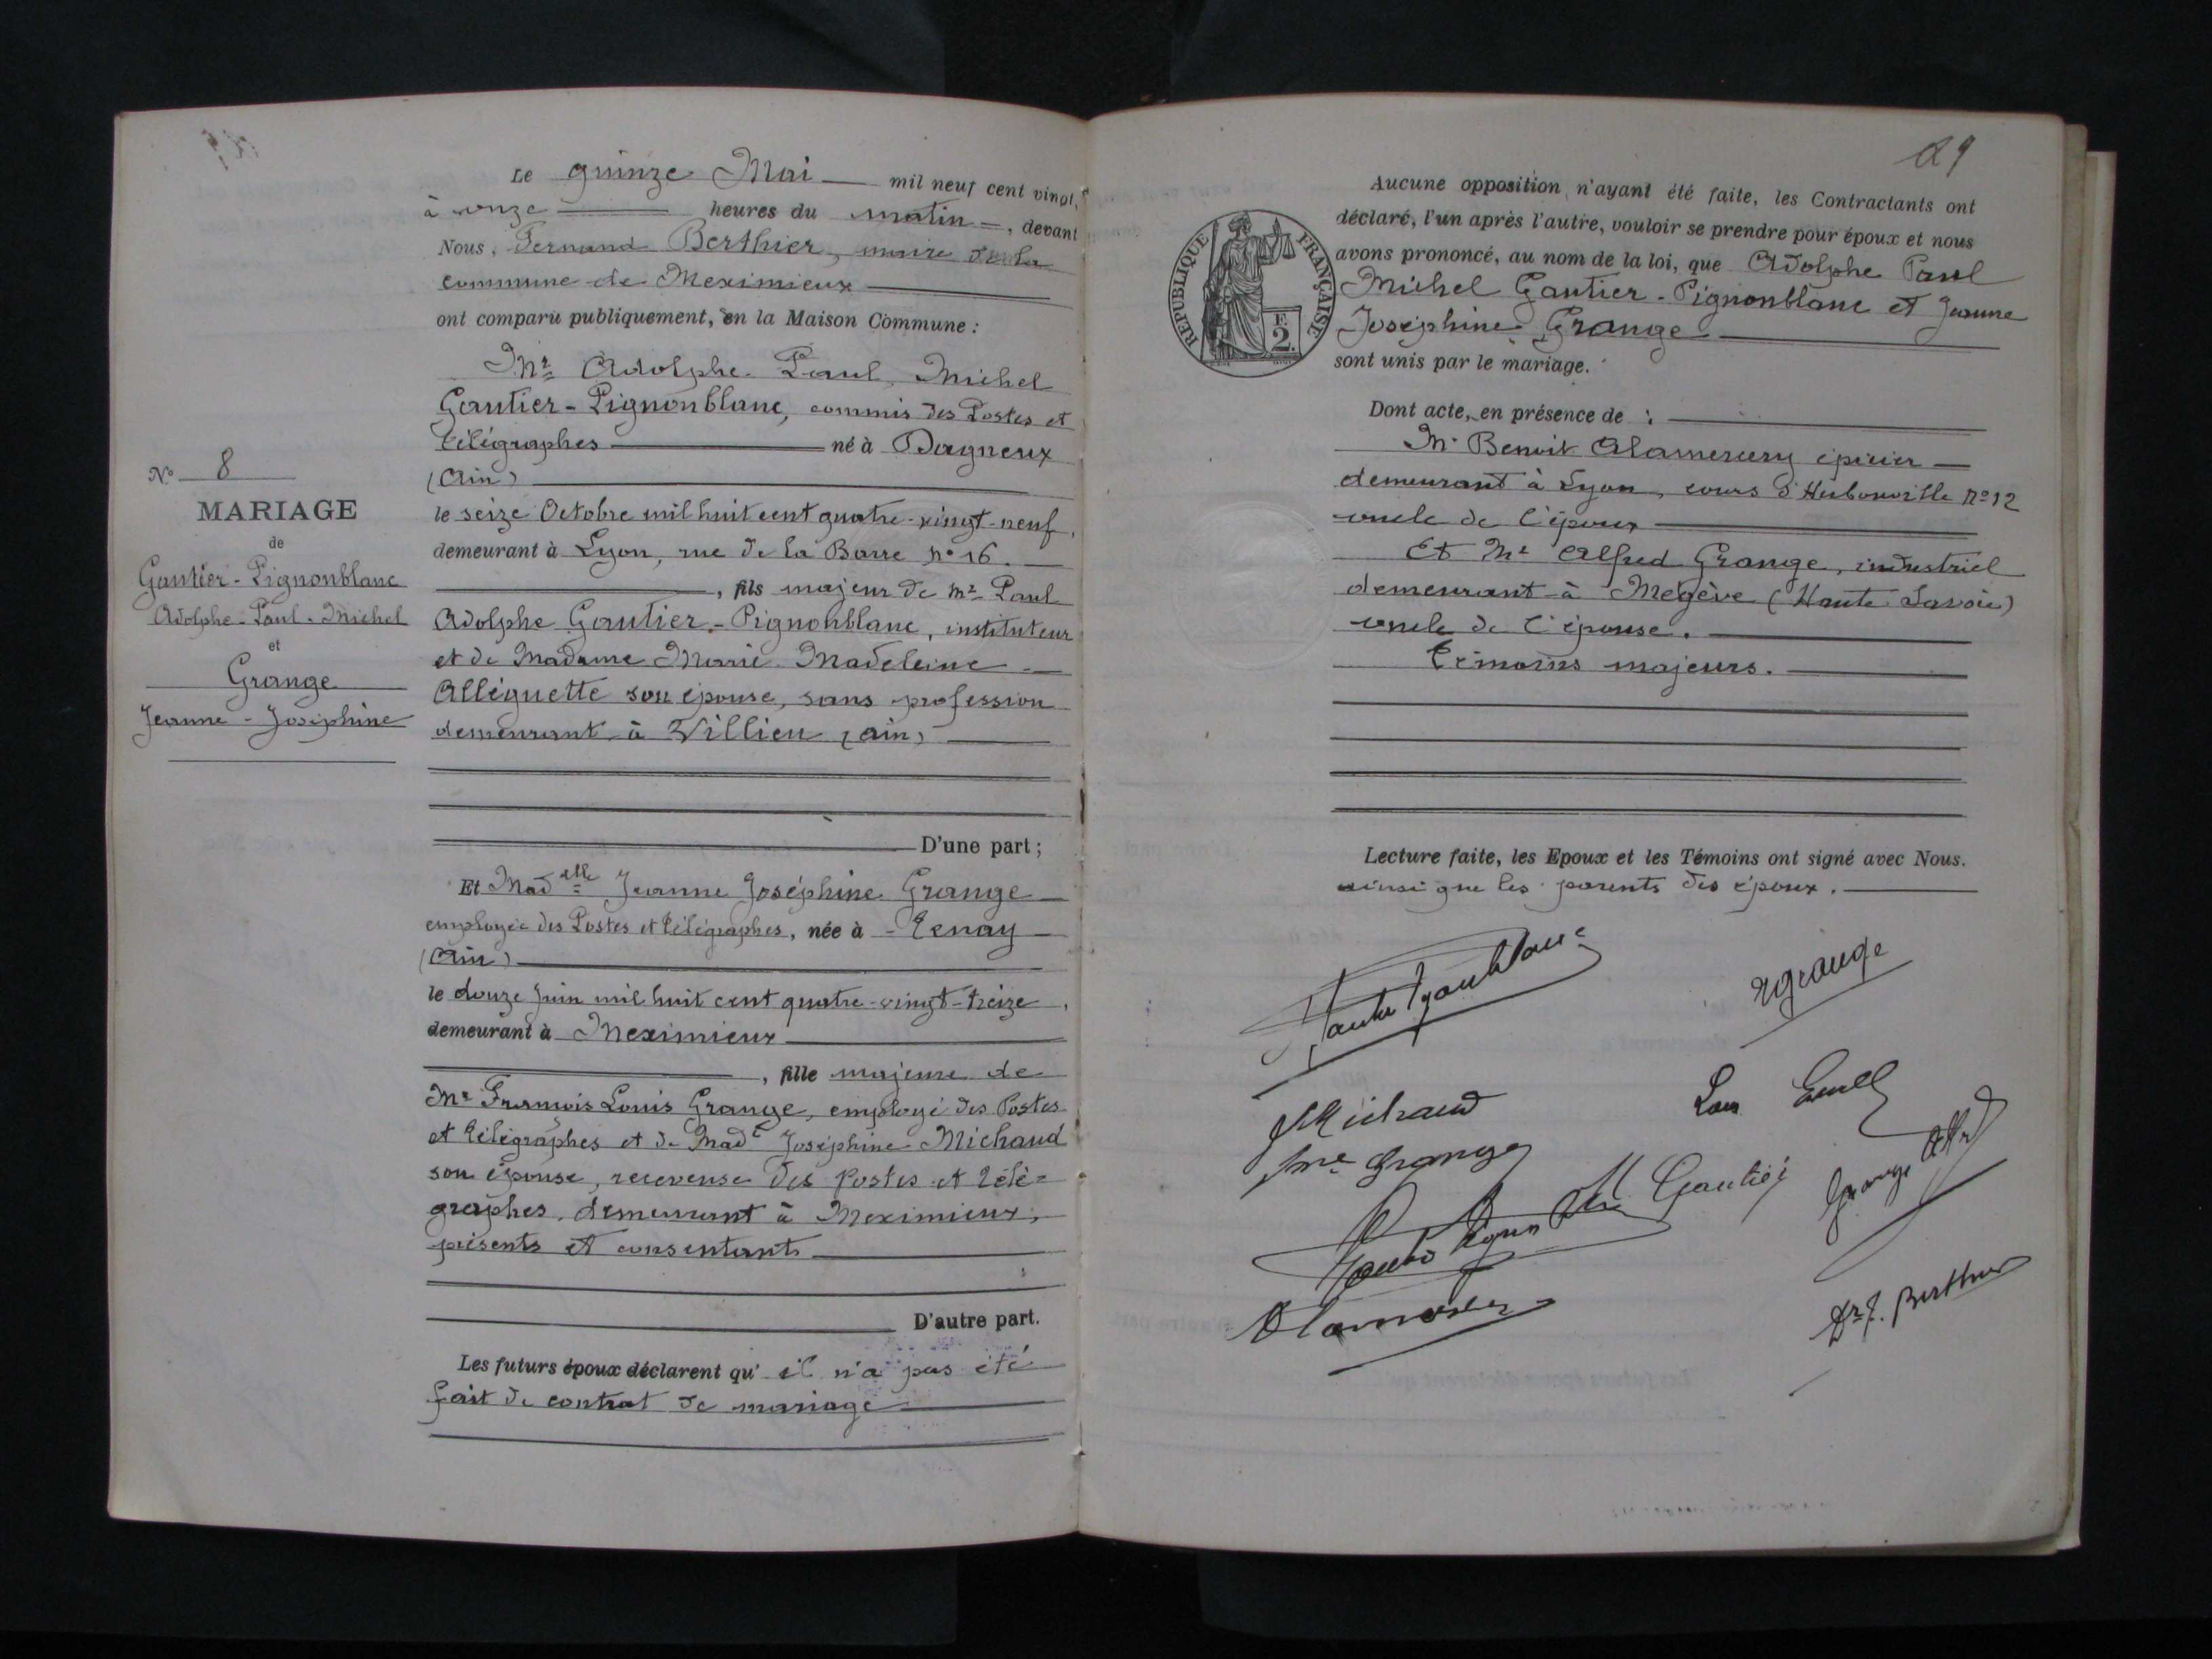 Le quinze Mai mil neuf cent vingt,
à onze heures du matin, devant
Nous, Fernand Berthier, maire de la
commune de Meximieux
ont comparu publiquement, en la Maison Commune :
Mr Adolphe Paul Michel
Gautier-Pignonblanc, commis des Postes et
télégraphes né à Dagneux
(Ain)
le seize Octobre mil huit cent quatre-vingt-neuf,
demeurant à Lyon, rue de la Barre no 16.
, fils majeur de mr Paul
Adolphe Gautier-Pignonblanc, instituteur
et de Madame Marie Madeleine
Alléguette son épouse, sans profession
demeurant à Villieu (ain)
D'une part ;
No 8
MARIAGE
de
Gautier-Pignonblanc
Adolphe-Paul-Michel
et
Grange
Jeanne-Joséphine
Et Madelle Jeanne Joséphine Grange
employée des Postes et télégraphes, née à Tenay
(Ain)
le douze juin mil huit cent quatre-vingt-treize,
demeurant à Meximieux
, fille majeure de
Mr François Louis Grange, employé des Postes
et télégraphes et de Made Joséphine Michaud
son épouse, receveuse des Postes et télé=
graphes, demeurant à Meximieux,
présents et consentants
D'autre part.
Les futurs époux déclarent qu'il n'a pas été
fait de contrat de mariage
29
Aucune opposition n'ayant été faite, les Contractants ont
déclaré, l'un après l'autre, vouloir se prendre pour époux et nous
avons prononcé, au nom de la loi, que Adolphe Paul
Michel Gautier-Pignonblanc et Jeanne
Joséphine Grange
sont unis par le mariage.
REPUBLIQUE FRANÇAISE
F.
2.
Dont acte, en présence de :
Mr Benoit Alamercery épicier
demeurant à Lyon, cours d'Herbouville no 12
oncle de l'époux
Et Mr Alfred Grange, industriel
demeurant à Megève (Haute Savoie)
oncle de l'épouse.
Témoins majeurs.
Lecture faite, les Epoux et les Témoins ont signé avec Nous.
ainsi que les parents des époux.
Grange
J Michaud
Me Grange
M Gautier
Grange Alfd
Dr F. Berthier